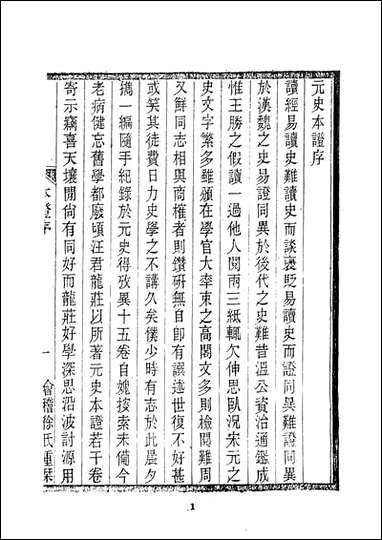 元史本證序
讀經易讀史難讀史而談襃貶易讀史而證同異難證同異
於漢魏之史易證同異於後代之史難昔溫公資治通鑑成
惟王勝之假讀一過他人閱兩三紙輒欠伸思臥況宋元之
史文字繁多雖頒在學官大率束之高閣文多則檢閱難周
又鮮同志相與商榷者則鑽研無自即有譔述世復不好甚
或笑其徒費日力史學之不講久矣僕少時有志於此晨夕
攜一編隨手紀錄於元史得攷異十五卷自媿搜索未備今
老病健忘舊學都廢頃汪君龍莊以所著元史本證若干卷
寄示竊喜天壤閒尙有同好而龍莊好學深思沿波討源用
本證序
一
會稽徐氏重栞
1